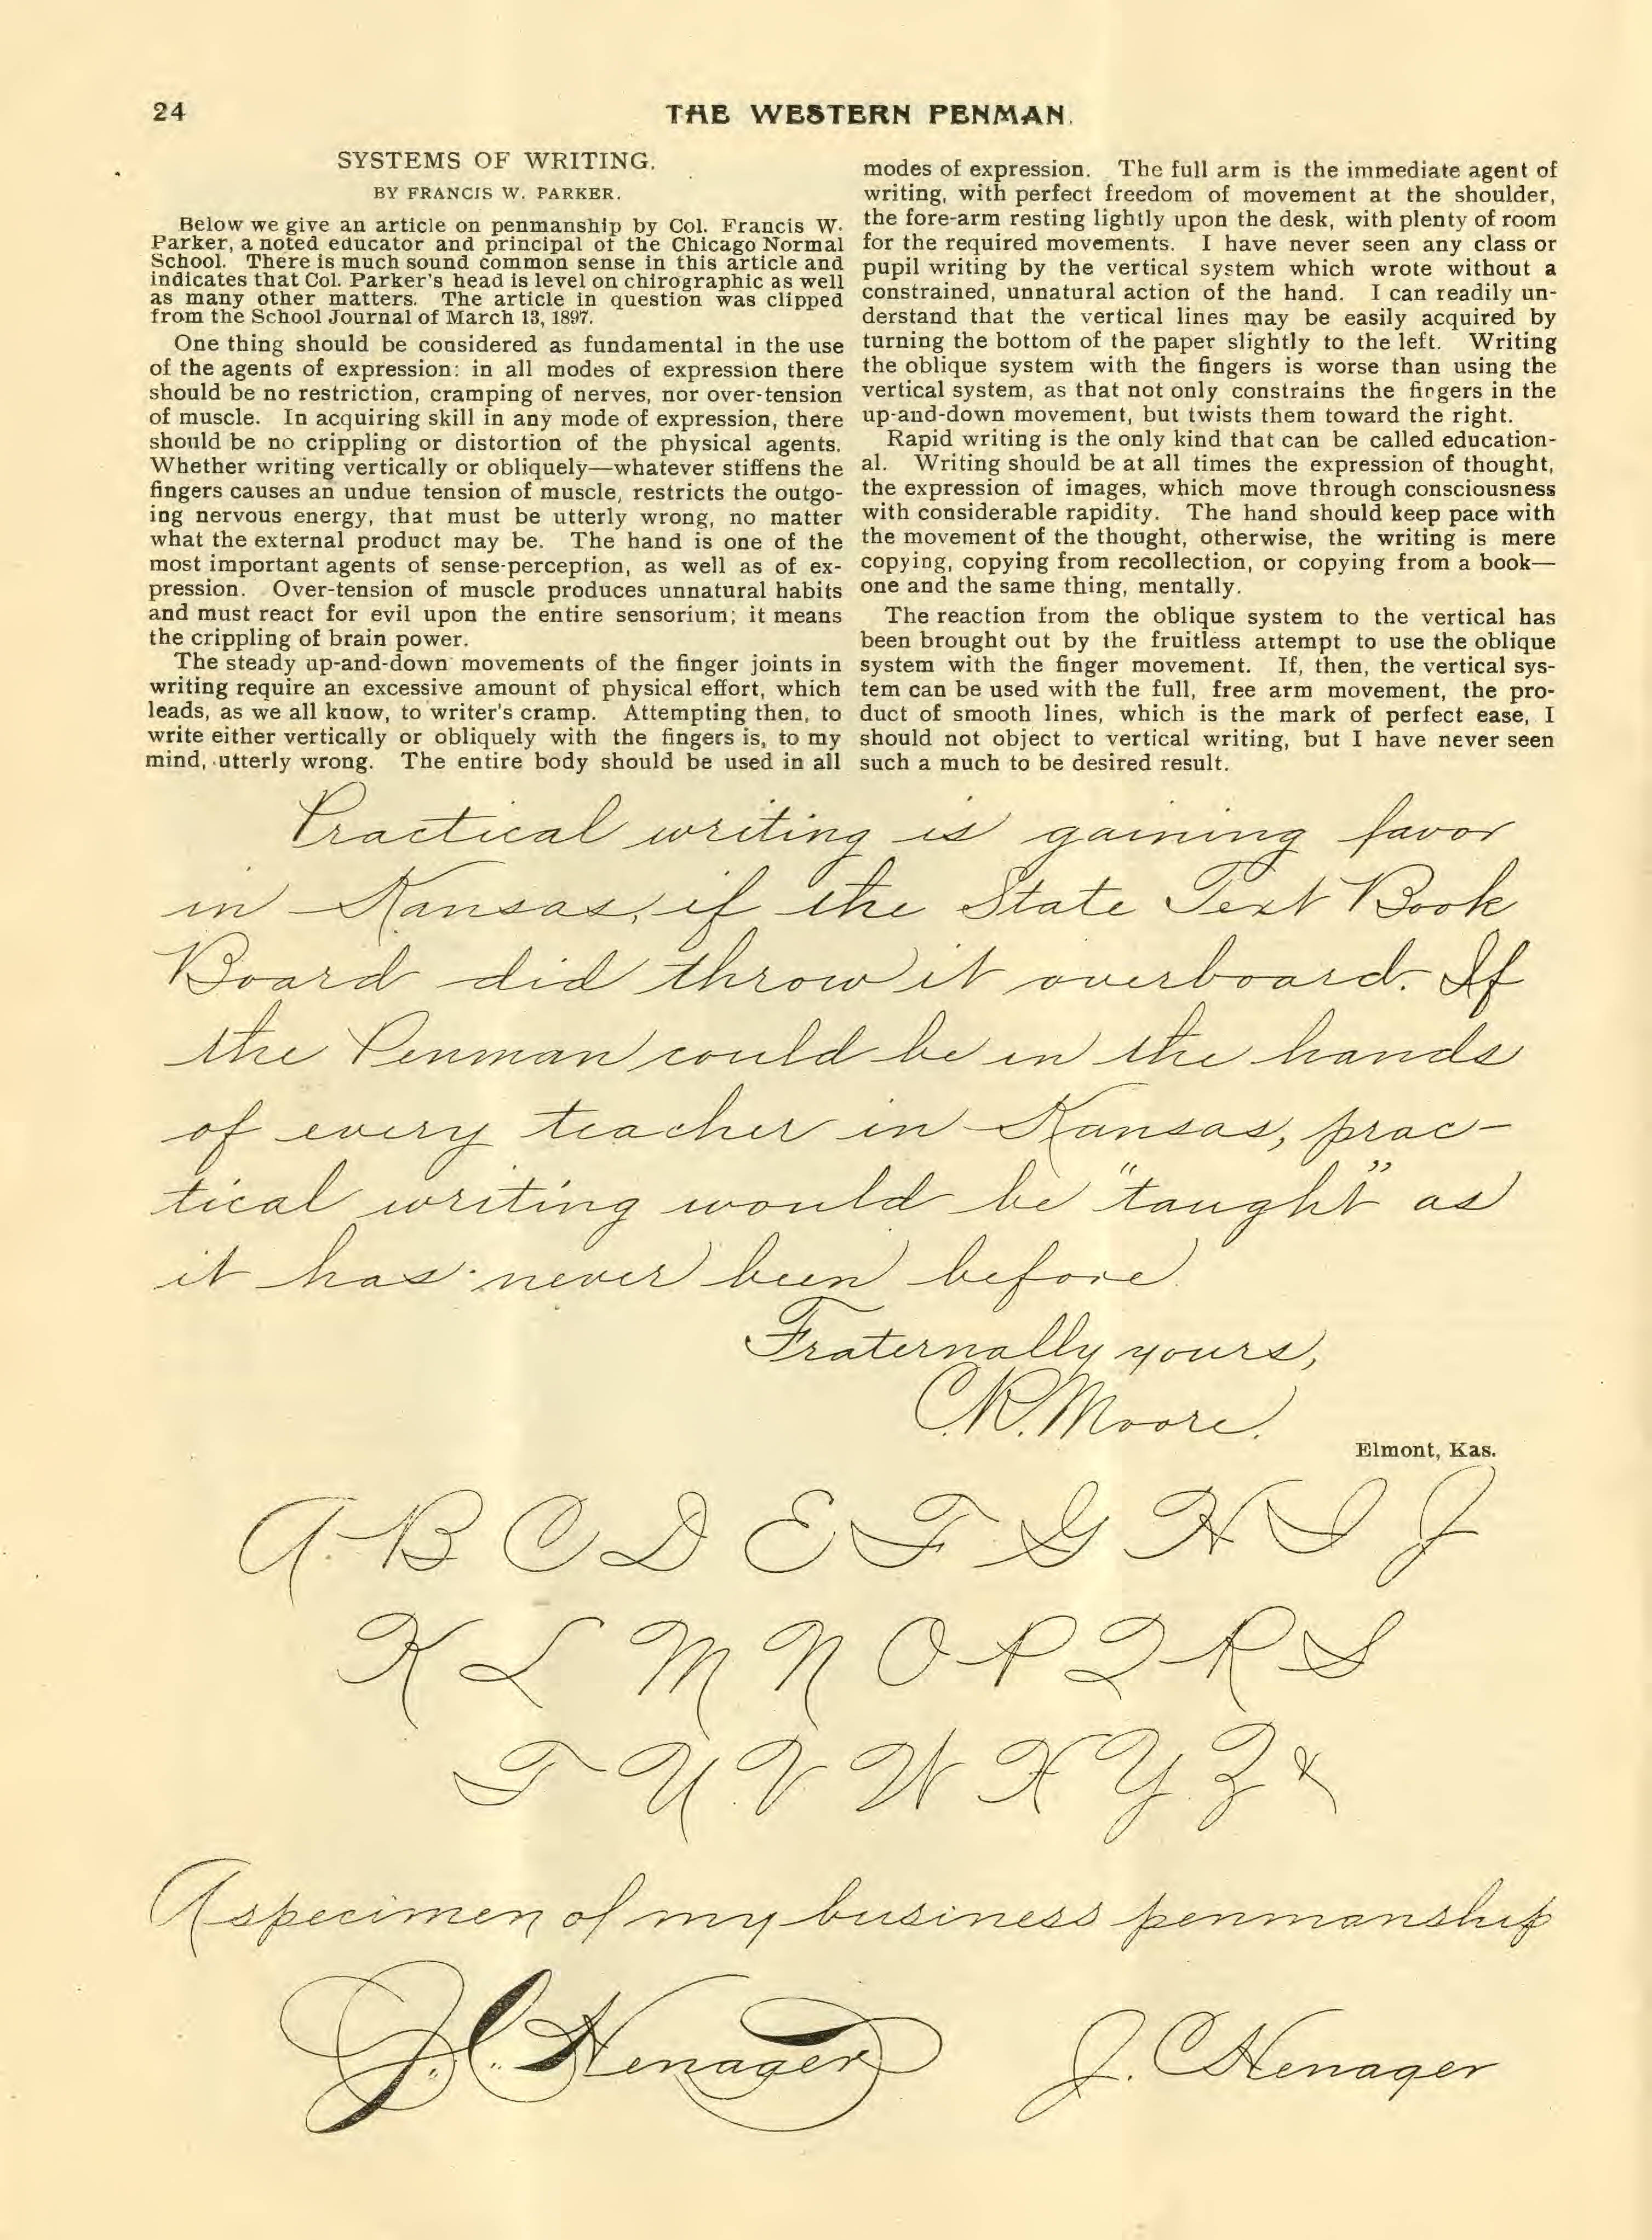 24
THE WESTERN PENMAN.
SYSTEMS OF WRITING.
BY FRANCIS W. PARKER.
Below we give an article on penmanship by Col. Francis W.
Parker, a noted educator and principal of the Chicago Normal
School. There is much sound common sense in this article and
indicates that Col. Parker's head is level on chirographic as well
as many other matters. The article in question was clipped
from the School Journal of March 13, 1897.
One thing should be considered as fundamental in the use
of the agents of expression: in all modes of expression there
should be no restriction, cramping of nerves, nor over-tension
of muscle. In acquiring skill in any mode of expression, there
should be no crippling or distortion of the physical agents.
Whether writing vertically or obliquely—whatever stiffens the
fingers causes an undue tension of muscle, restricts the outgo-
ing nervous energy, that must be utterly wrong, no matter
what the external product may be. The hand is one of the
most important agents of sense-perception, as well as of ex-
pression. Over-tension of muscle produces unnatural habits
and must react for evil upon the entire sensorium; it means
the crippling of brain power.
The steady up-and-down movements of the finger joints in
writing require an excessive amount of physical effort, which
leads, as we all know, to writer's cramp. Attempting then, to
write either vertically or obliquely with the fingers is, to my
mind, utterly wrong. The entire body should be used in all
modes of expression. The full arm is the immediate agent of
writing, with perfect freedom of movement at the shoulder,
the fore-arm resting lightly upon the desk, with plenty of room
for the required movements. I have never seen any class or
pupil writing by the vertical system which wrote without a
constrained, unnatural action of the hand. I can readily un-
derstand that the vertical lines may be easily acquired by
turning the bottom of the paper slightly to the left. Writing
the oblique system with the fingers is worse than using the
vertical system, as that not only constrains the fingers in the
up-and-down movement, but twists them toward the right.
Rapid writing is the only kind that can be called education-
al. Writing should be at all times the expression of thought,
the expression of images, which move through consciousness
with considerable rapidity. The hand should keep pace with
the movement of the thought, otherwise, the writing is mere
copying, copying from recollection, or copying from a book—
one and the same thing, mentally.
The reaction from the oblique system to the vertical has
been brought out by the fruitless attempt to use the oblique
system with the finger movement. If, then, the vertical sys-
tem can be used with the full, free arm movement, the pro-
duct of smooth lines, which is the mark of perfect ease, I
should not object to vertical writing, but I have never seen
such a much to be desired result.
Practical writing is gaining favor
in Kansas, if the State Text Book
Board did throw it overboard. If
the Penman could be in the hands
of every teacher in Kansas, prac-
tical writing would be "taught" as
it has never been before.
Fraternally yours,
C.R. Moore.
Elmont, Kas.
A B C D E F G H I J
K L M N O P Q R S
T U V W X Y Z &
A specimen of my business penmanship
J. C. Henager J. C Henager